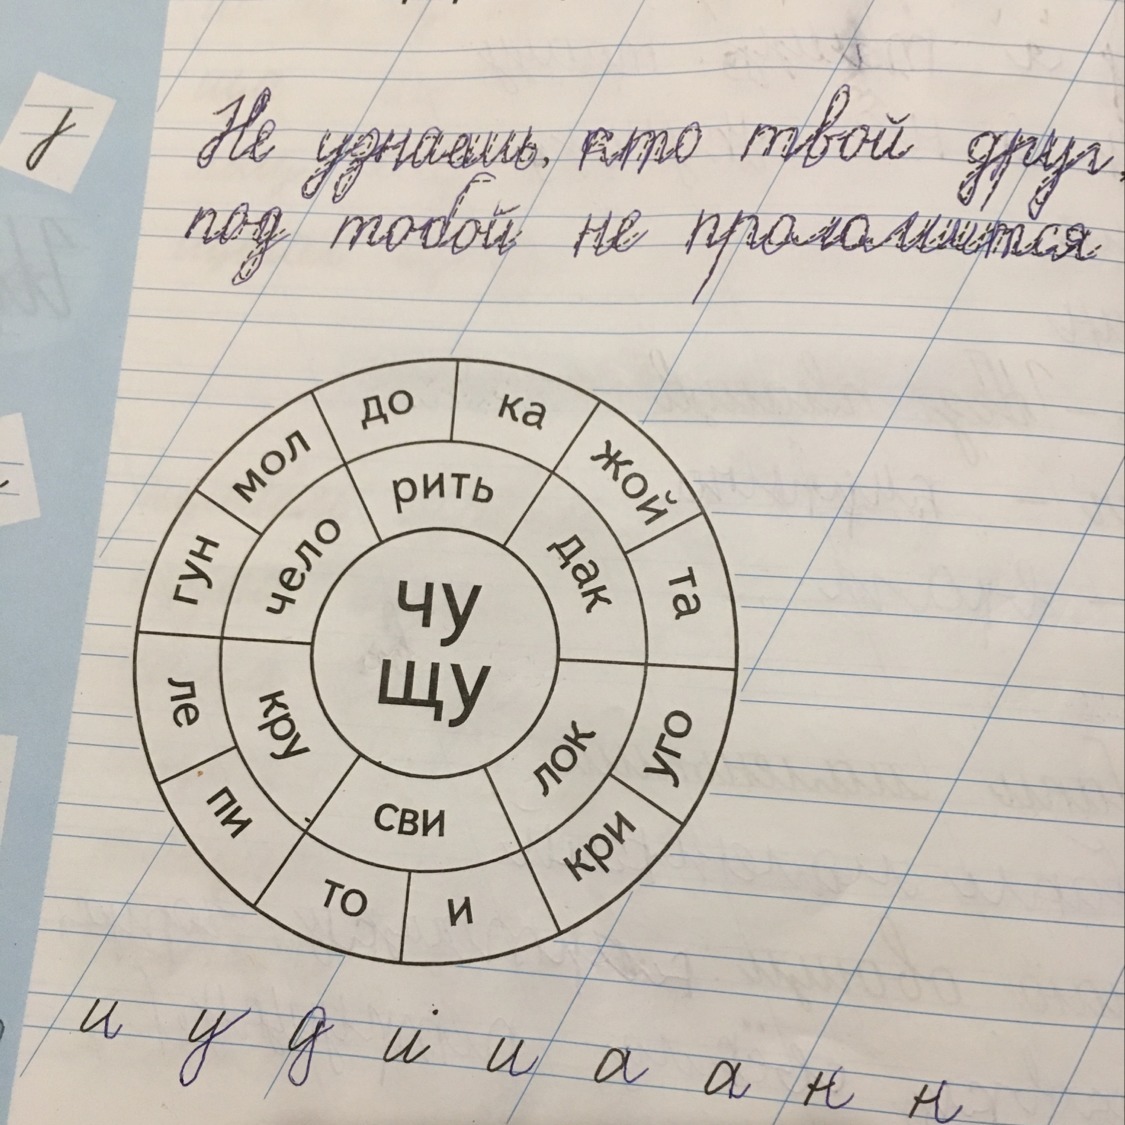 у
Не узнаешь, кто твой друг,
под тобой не проломится
до
ка
жой
та
уго
кри
и
то
пи
ле
гун
мол
рить
дак
лок
сви
кру
чело
чу
щу
и у д й и а а н н